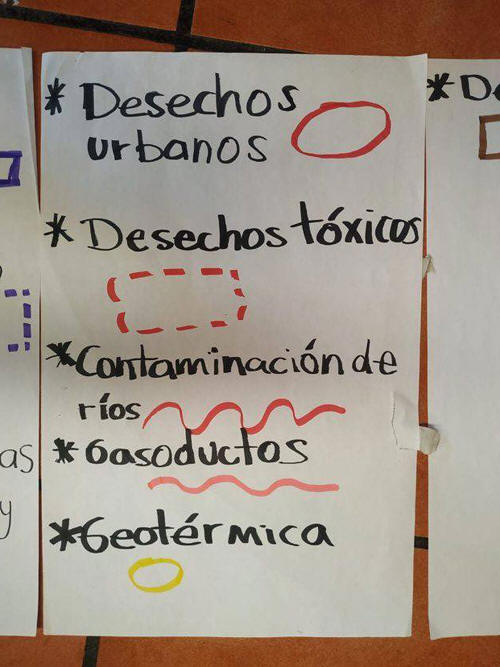 * Desechos
urbanos
* Desechos tóxicos
* Contaminación de
ríos
* Gasoductos
* Geotérmica
* De
as
y